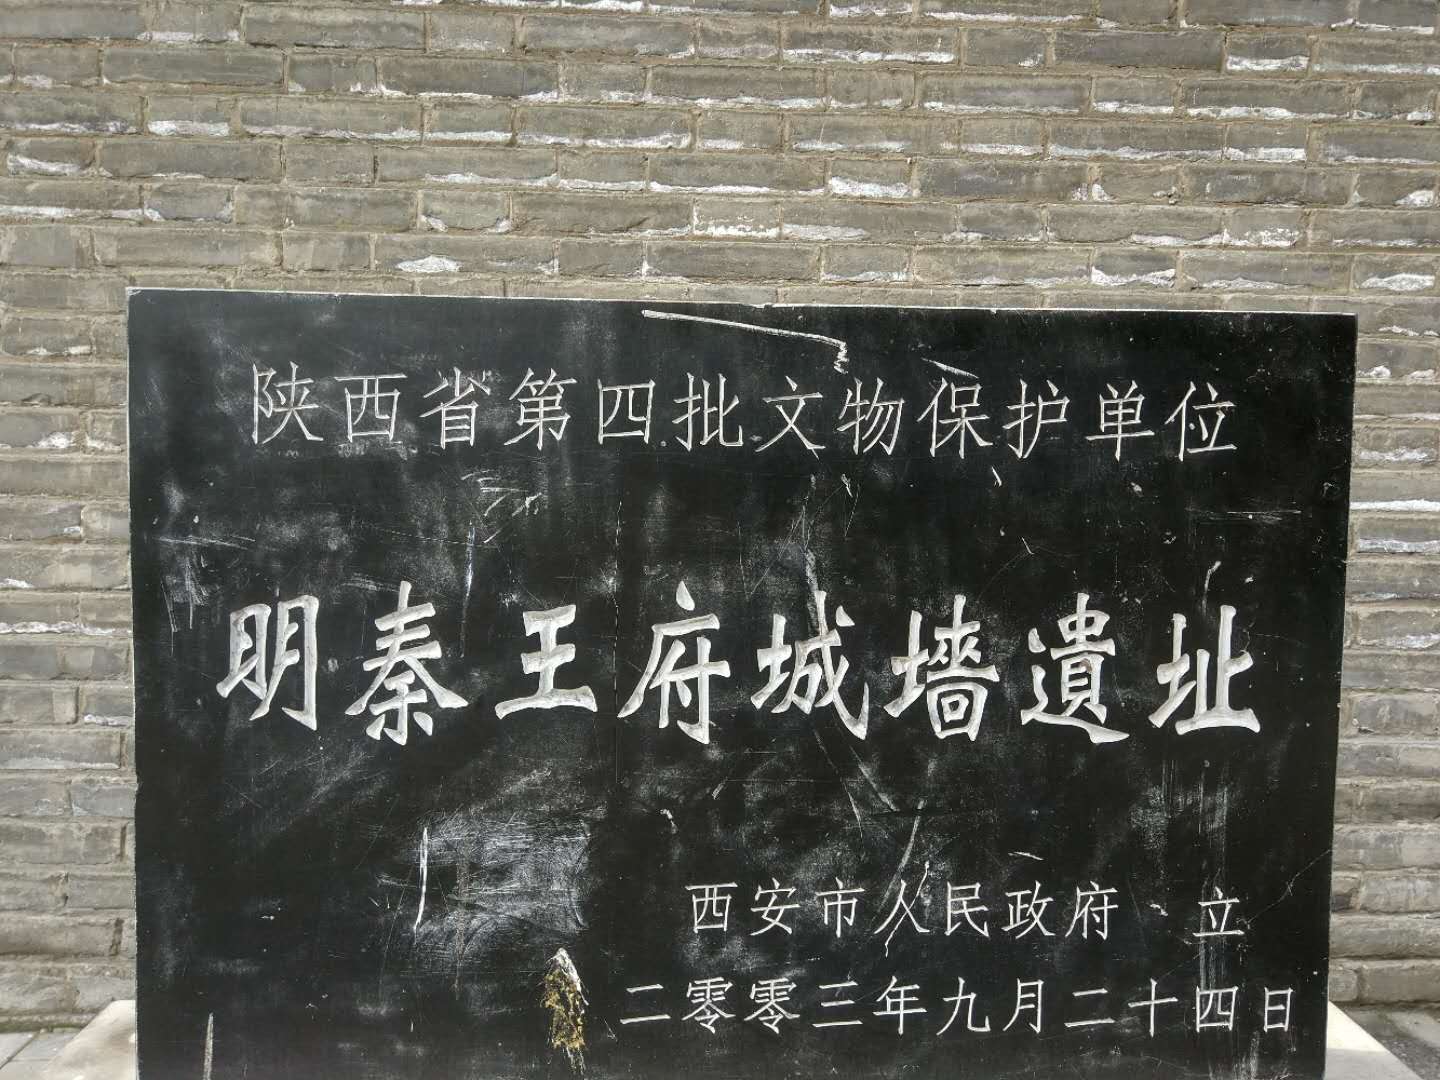 陕西省第四批文物保护单位
明秦王府城墻遺址
西安市人民政府 立
二零零三年九月二十四日